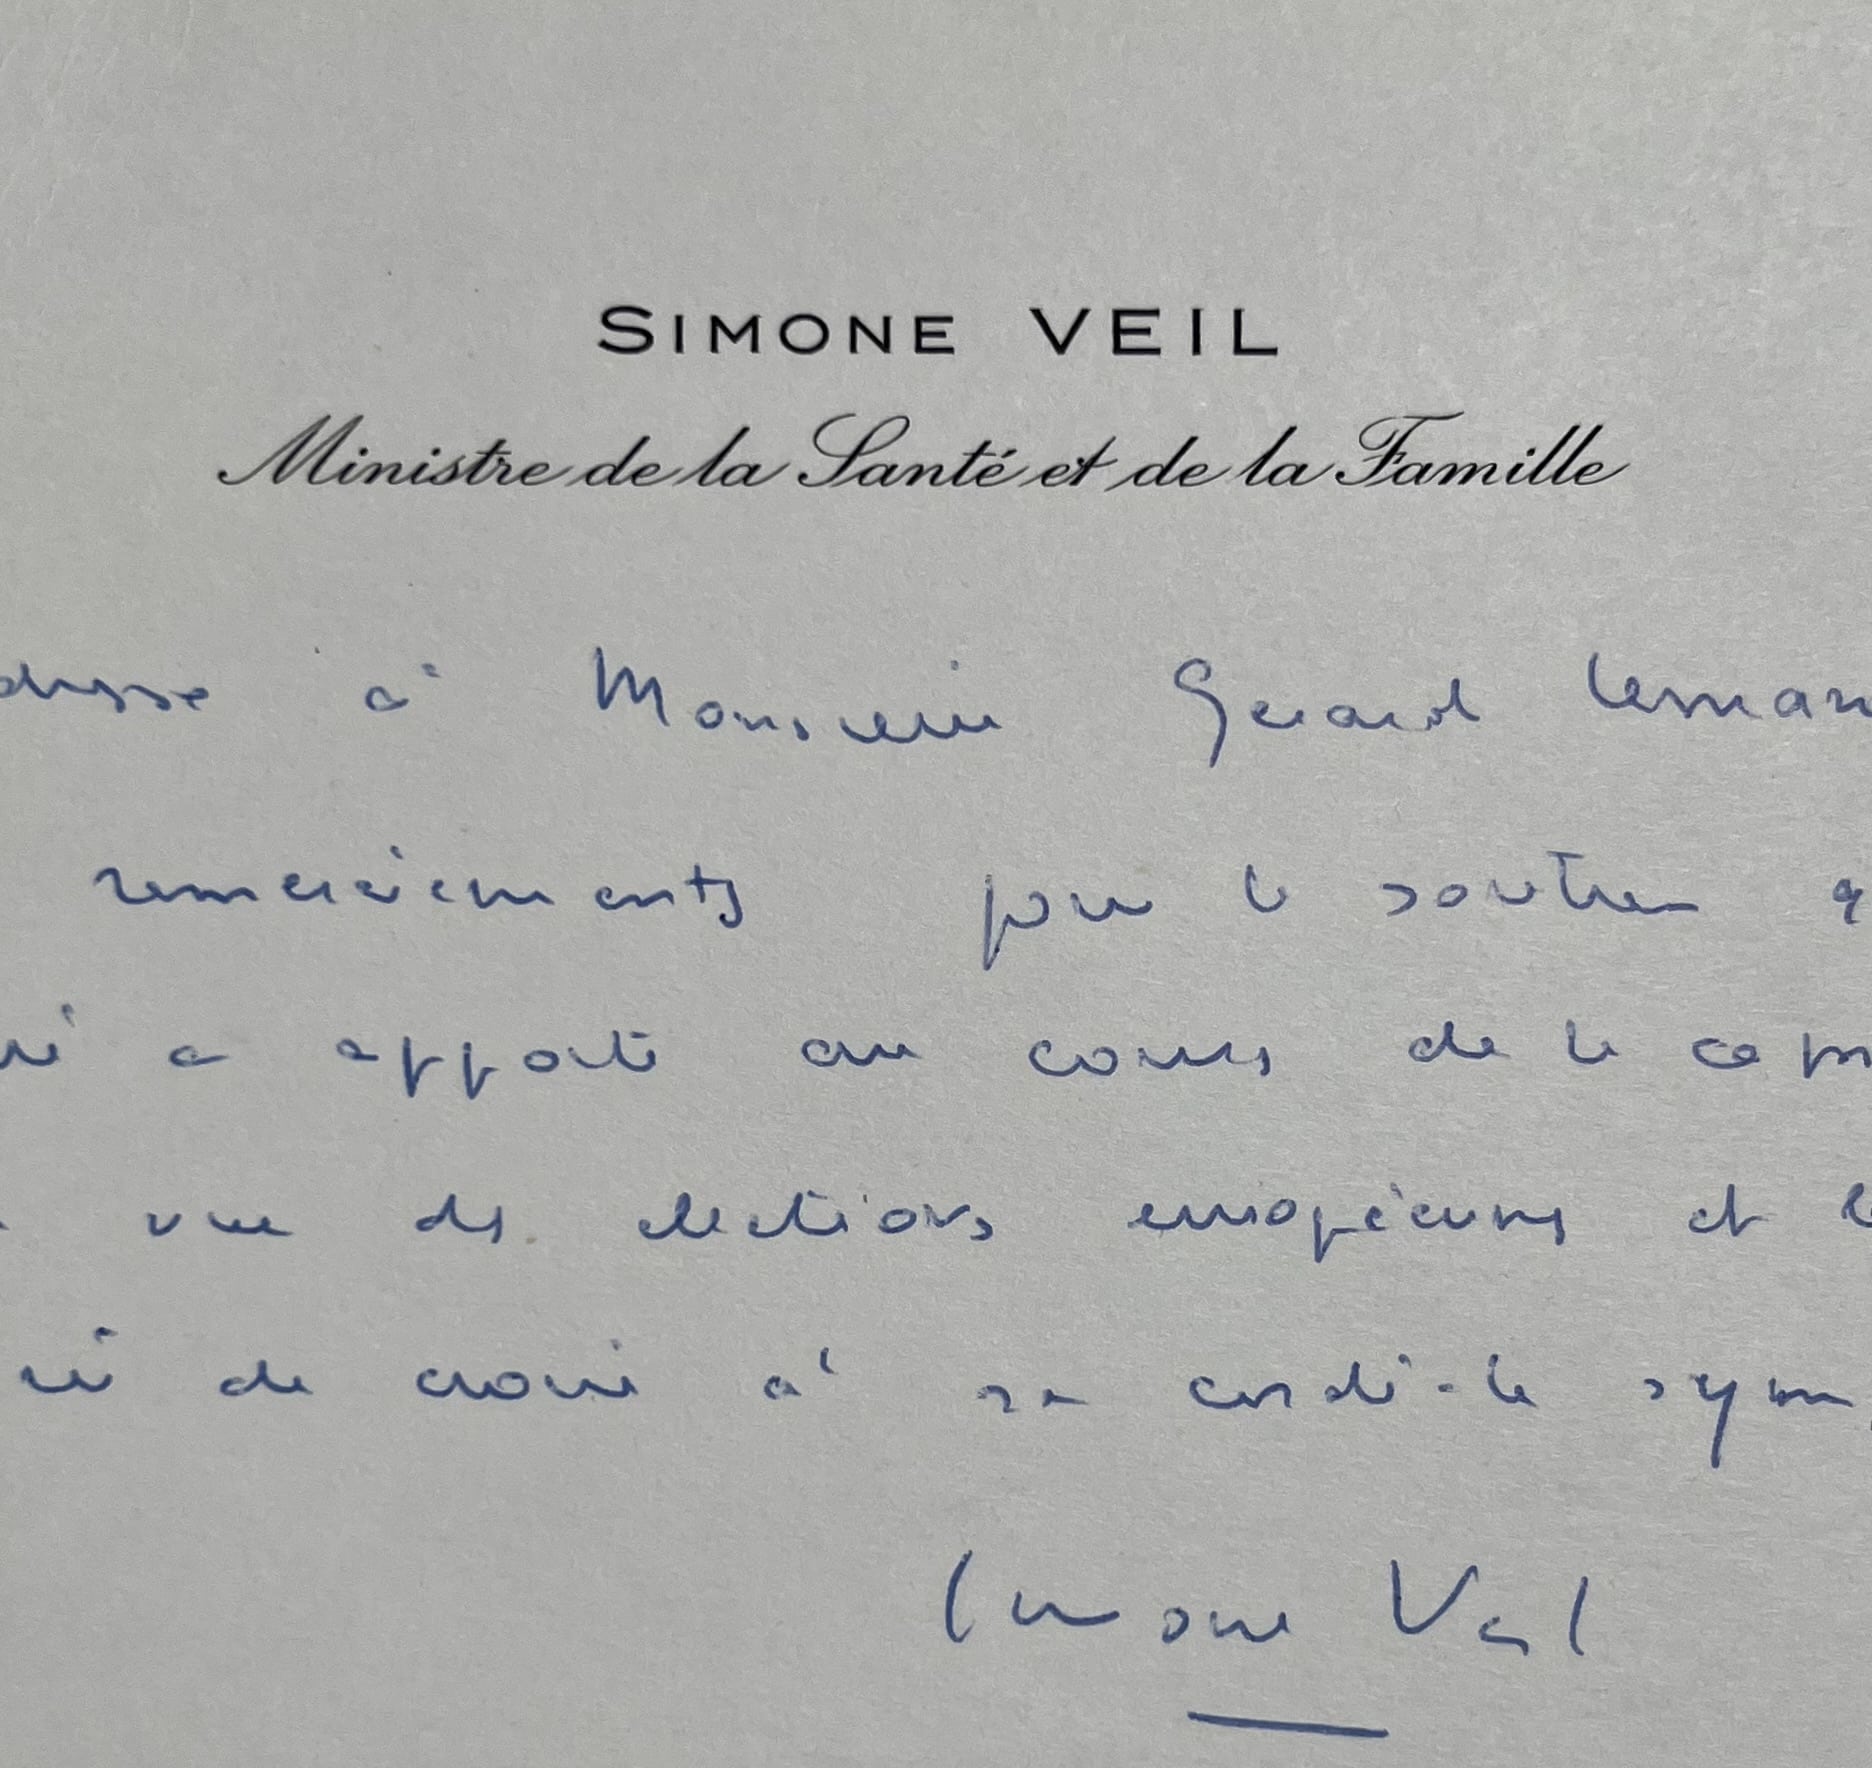 SIMONE VEIL
Ministre de la Santé et de la Famille
dresse à Monsieur Gerard Leman
remerciements pour le soutien q
ui a apporté au cours de la camp
vue des elections européennes et l
ui de croire à sa cordiale symp
Simone Veil